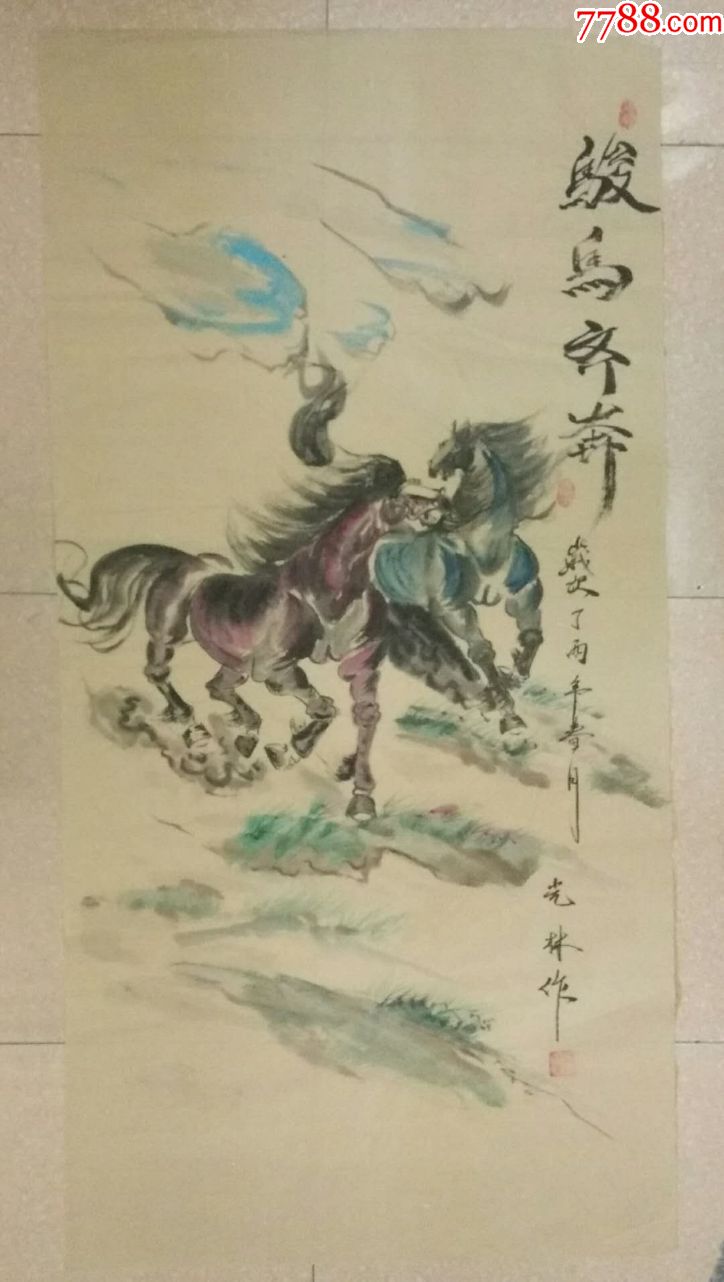 7788.com
駿馬齐奔
歲次丁酉年春月
光林作